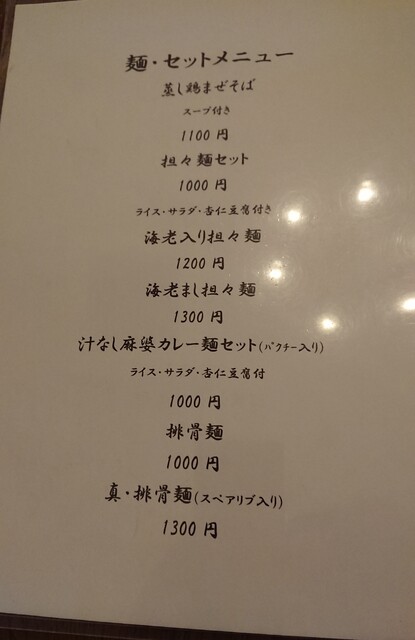 麺・セットメニュー
蒸し鶏まぜそば
スープ付き
1100 円
担々麺セット
1000 円
ライス・サラダ・杏仁豆腐付き
海老入り担々麺
1200 円
海老まし担々麺
1300 円
汁なし麻婆カレー麺セット(パクチー入り)
ライス・サラダ・杏仁豆腐付
1000 円
排骨麺
1000 円
真・排骨麺(スペアリブ入り)
1300 円